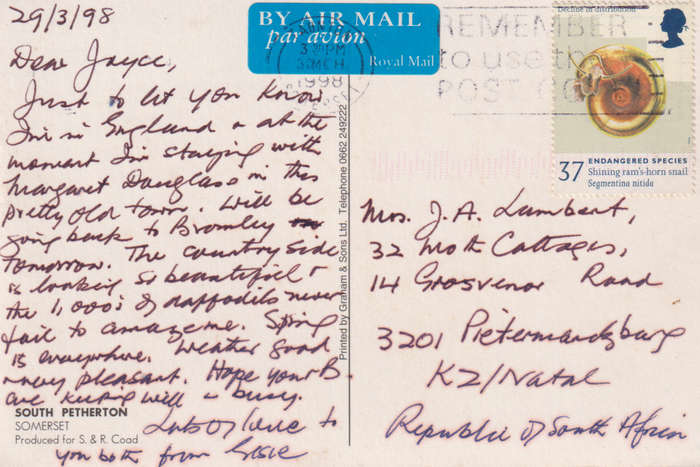 29/3/98
Dear Joyce,
Just to let you know
I'm in England & at the
moment I'm staying with
Margaret Douglass in this
pretty old town. Will be
going back to Bromley
tomorrow. The countryside
is looking so beautiful &
the 1,000's of daffodils never
fail to amaze me. Spring
is everywhere. Weather good
& very pleasant. Hope your B.
are keeping well & busy.
Lots of love to
you both from Elsie
SOUTH PETHERTON
SOMERSET
Produced for S. & R. Coad
Printed by Graham & Sons Ltd. Telephone 0662 249222
BY AIR MAIL
par avion
Royal Mail
30 MCH
1998
REMEMBER
to use the
POST CO
Decline in distribution
37 ENDANGERED SPECIES
Shining ram's-horn snail
Segmentina nitida
Mrs. J.A. Lambert,
32 Mott Cottages,
14 Grosvenor Road
3201 Pietermaritzburg
KZ/Natal
Republic of South Africa